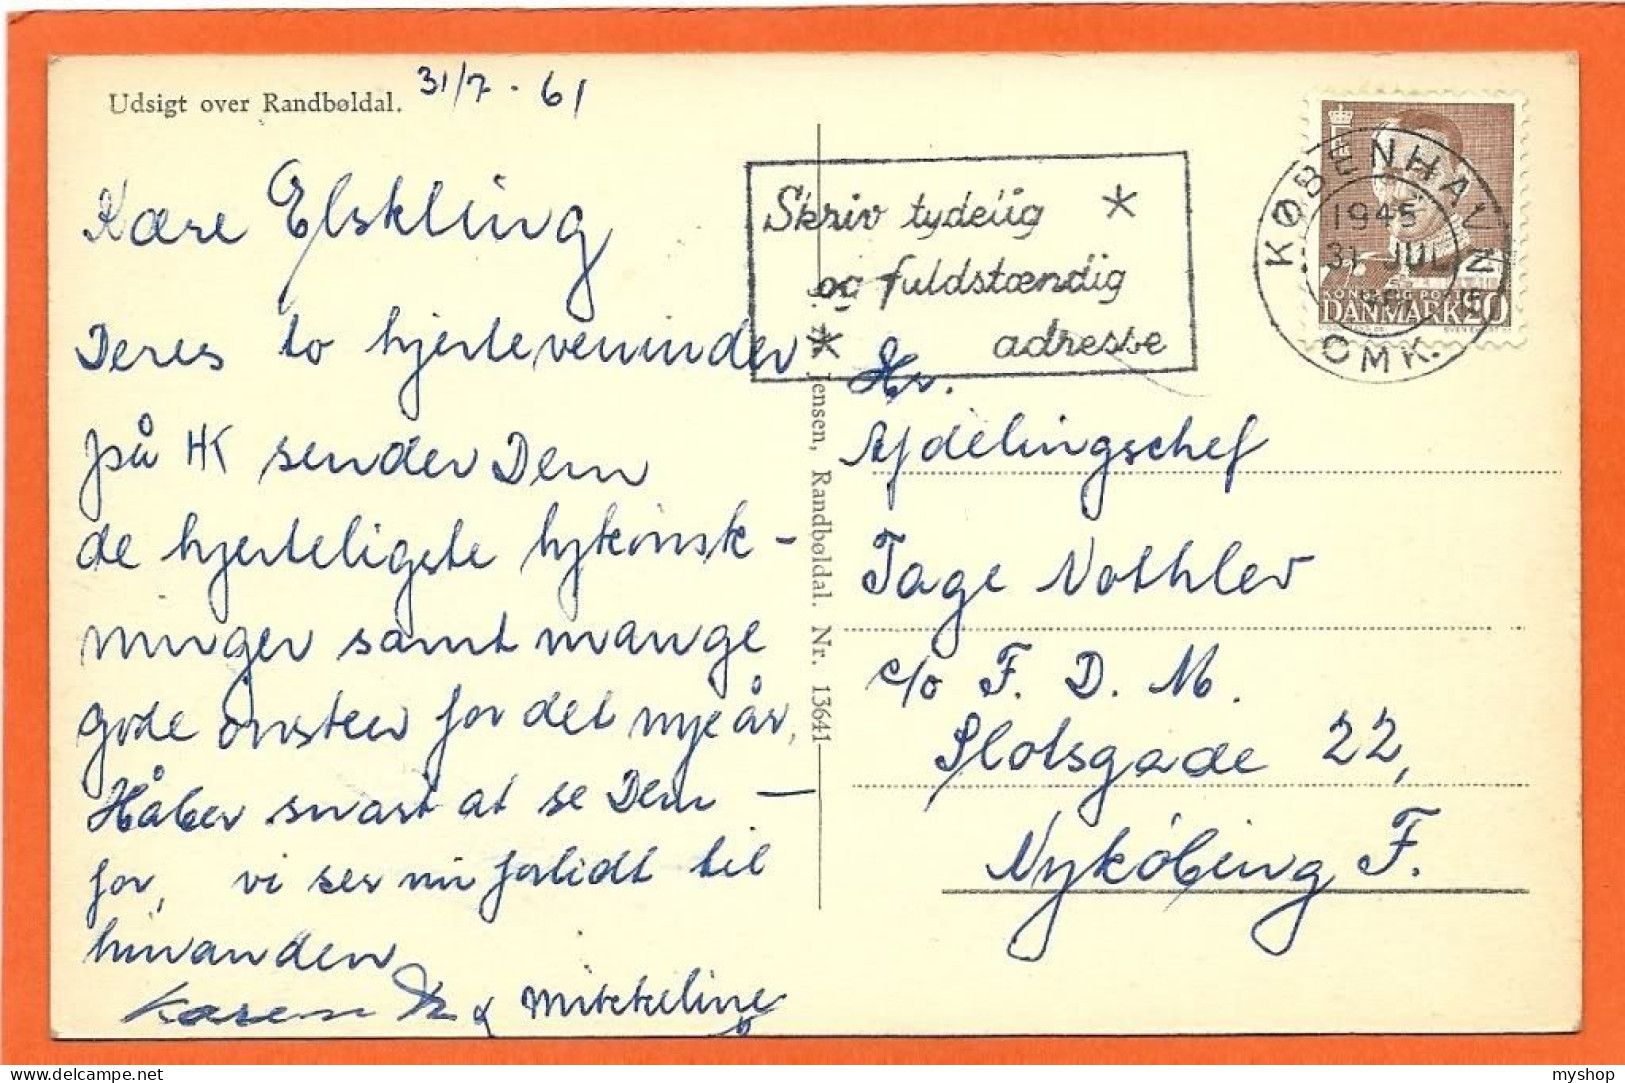 Udsigt over Randbøldal.
31/7 - 61
Kære Elskling
Deres to hjerteveninder
på HK sender Dem
de hjerteligste lykønsk-
ninger samt mange
gode ønsker for det nye år,
Håber snart at se Dem —
for, vi ser nu forlidt til
hinanden
Karen & Mikkeline
Jensen, Randbøldal. Nr. 13641
Skriv tydelig *
og fuldstændig
* adresse
KØBENHAVN
1945
31 JUL
OMK.
DANMARK 20
Hr.
Afdelingschef
Tage Nothlev
c/o F. D. M.
Slotsgade 22,
Nykøbing F.
delcampe.net
myshop